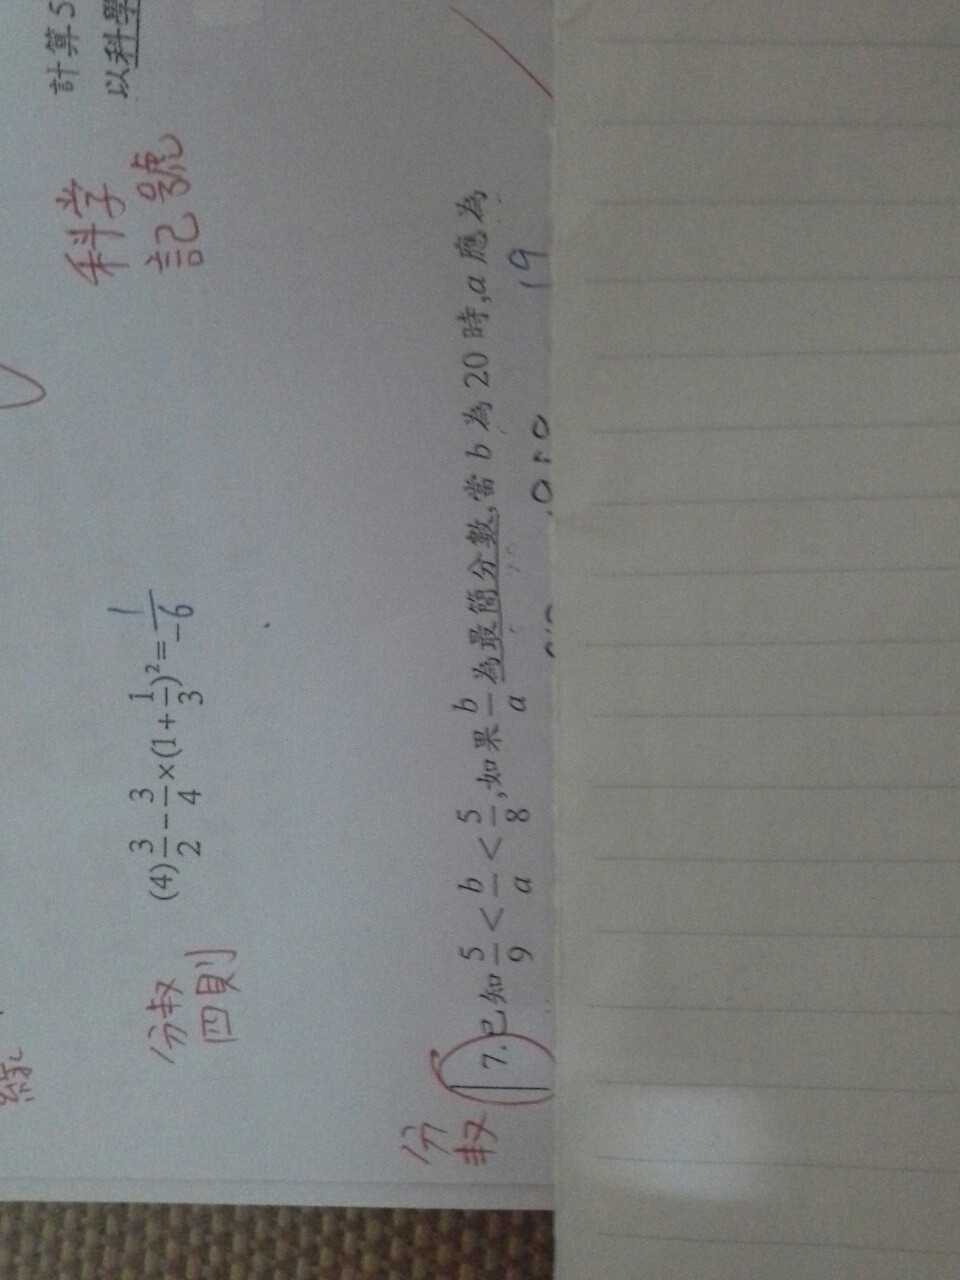 計算5
以科學
科学
記號
分数
四則
(4) 3/2 - 3/4 × (1 + 1/3)² = 1/-6
分
数
7. 已知 5/9 < b/a < 5/8 ,如果 b/a 為最簡分數,當 b 為 20 時,a 應為
19